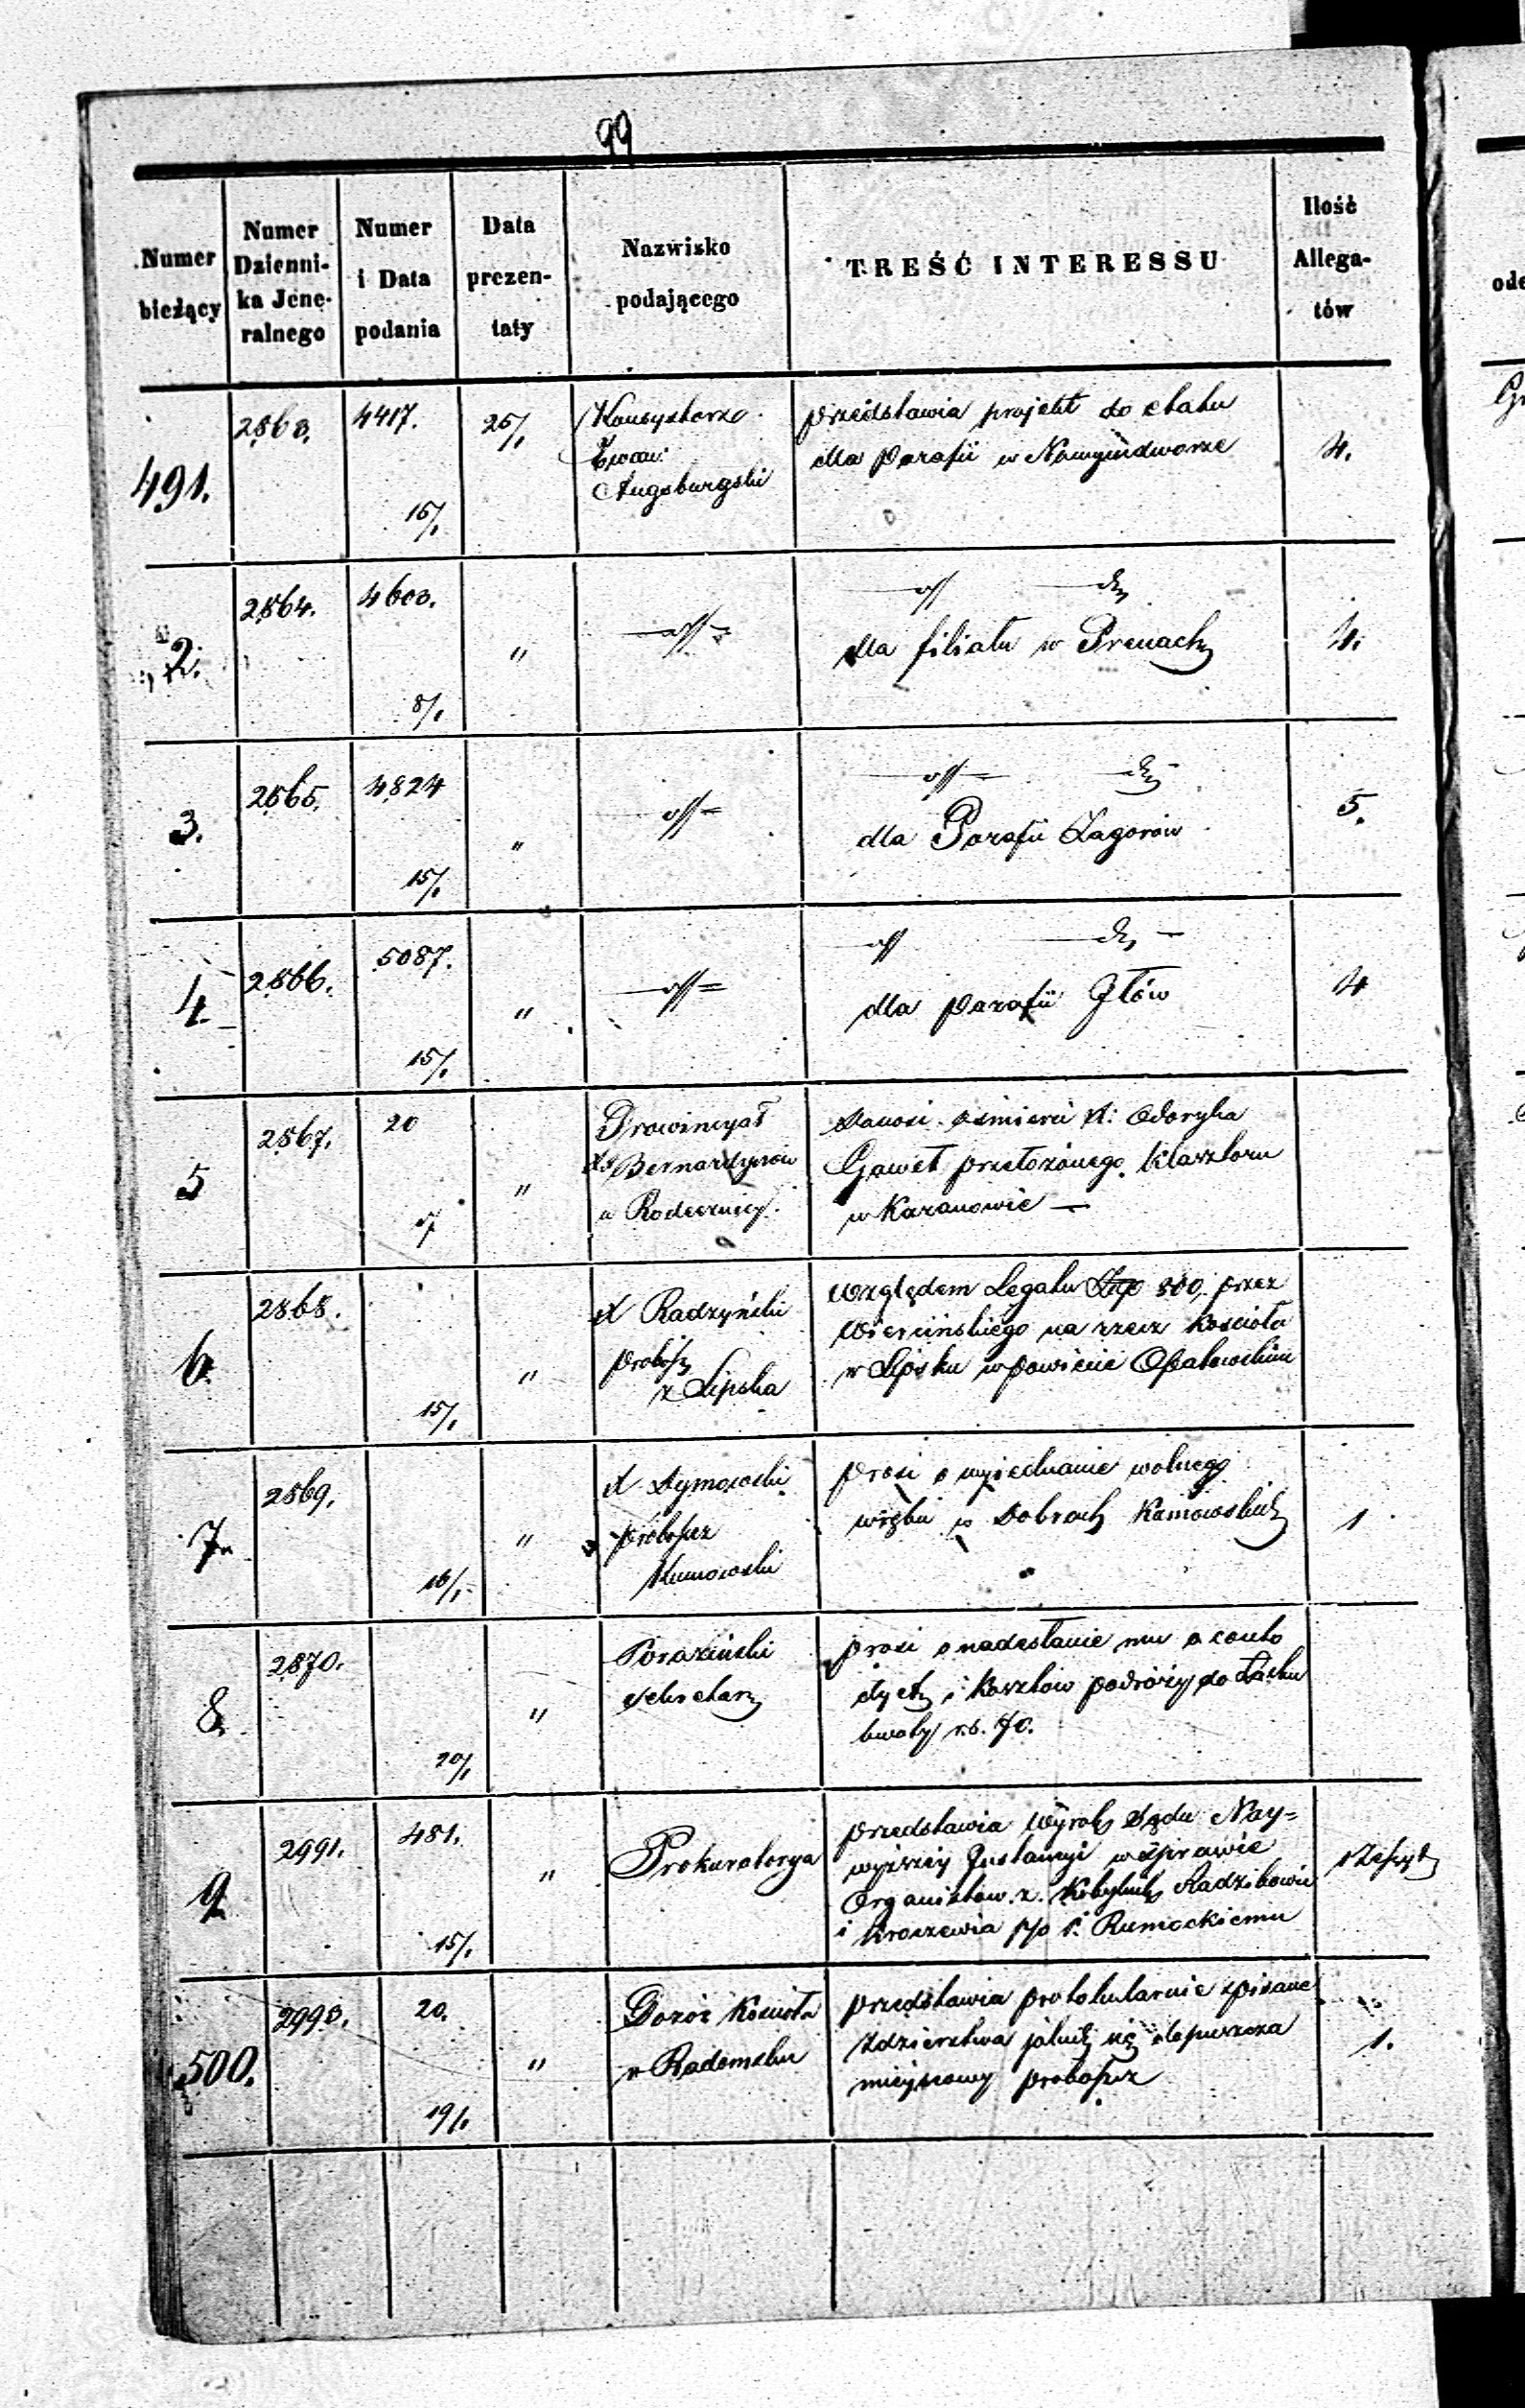 99
Numer bieżący
Numer Dzienni-ka Jene-ralnego
Numer i Data podania
Data prezen-taty
Nazwisko podającego
TREŚĆ INTERESSU
Ilość Allega-tów
491. 2863. 4417. 16/1 25/1
Konsystorz
Ewan:
Augsburgski
przedstawia projekt do etatu
dla Parafii w Nowymdworze
4.
2. 2864. 4603. 8/1 "
dla filiału w Prenach
4.
3. 2865. 4824 15/1 "
dla Parafii Zagorów
5.
4. 2866. 5087. 15/1 "
dla parafii Iłów
4
5 2867. 20 "
Prowincyał
XX Bernardynów
w Radecznicy.
donosi o śmierci X: Odoryka
Gaweł przełożonego Klasztoru
w Kazanowie —
6. 2868. 15/1 "
X Radzyński
probosz
z Lipska
Względem Legatu 300, przez
Wiercińskiego na rzecz Kościoła
w Lipsku w powiecie Opatowskim
7. 2869. 16/1 "
X Dymowski
proboszcz
Kumowski
prosi o wyjednanie wolnego
wrębu w Dobrach Kumowskich
1
8. 2870. 20/1 "
Poraziński
Sekretarz
prosi o nadesłanie mu a conto
dyet i kosztów podróży do Łasku
kwoty rs. 70.
9. 2991. 481. 15/1 "
Prokuratorya
przedstawia Wyrok Sądu Nay=
wyższey Instancyi w sprawie
Organistów z Radzikowa
i Kroczewia p/o P. Rumockiemu
1 Zeszyt
500. 2993. 20. 19/1 "
Dozór Kościoła
w Radomsku
przedstawia protokularnie spisane
zdzierstwa jakich się dopuszcza
mieyscowy proboszcz
1.